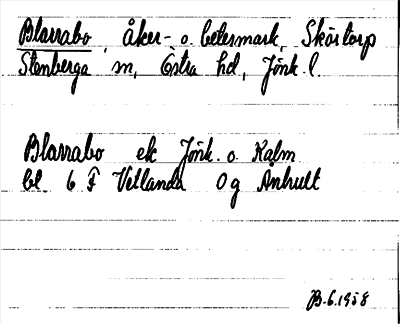 Blarrabo, Åker- o. betesmark, Skörtorp
Stenberga sn, Östra hd, Jönk. l.
Blarrabo ek Jönk. o. Kalm
bl. 6 F Vetlanda Og Anhult
B. 6. 1958